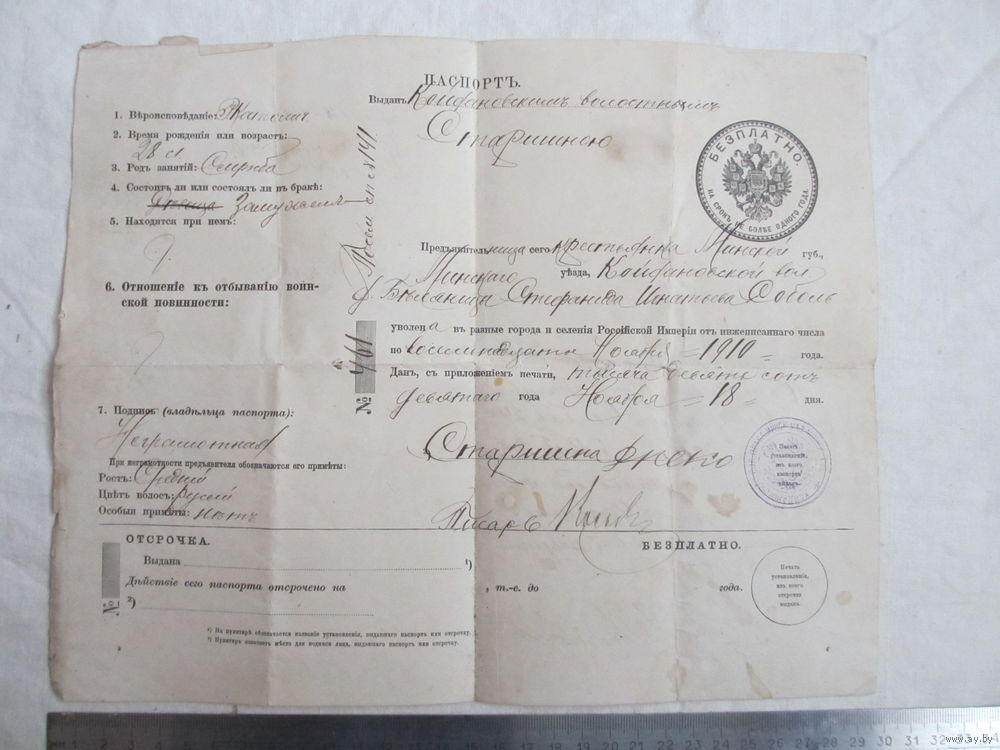 ПАСПОРТЪ.
Выданъ Койдановскимъ волостнымъ
Старшиною
1. Вѣроисповѣданіе: Р Католич
2. Время рожденія или возрастъ:
28 л.
3. Родъ занятій: Служба
4. Состоитъ ли или состоялъ ли въ бракѣ:
Дѣвица Замужняя
5. Находятся при немъ:
6. Отношеніе къ отбыванію воин-
ской повинности:
БЕЗПЛАТНО.
НА СРОКЪ НЕ БОЛѢЕ ОДНОГО ГОДА.
Предъявительница сего крестьянка Минской губ.,
Минскаго уѣзда, Койдановской вол
Стефанида Игнатьева Соболь
уволена въ разные города и селенія Россійской Имперіи отъ нижеписаннаго числа
по восемнадцатое Ноября 1910 года.
Данъ, съ приложеніемъ печати, тысяча девятьсотъ
девятаго года Ноября 18 дня.
№ 461
№ 141
7. Подпись (владѣльца паспорта):
Неграмотная
При неграмотности предъявителя обозначаются его примѣты:
Ростъ: Средній
Цвѣтъ волосъ: Русый
Особыя примѣты: нѣтъ
Старшина
Писарь
Печать
установленія,
изъ коего
паспортъ
выданъ.
ОТСРОЧКА.
БЕЗПЛАТНО.
Выдана ¹)
Дѣйствіе сего паспорта отсрочено на , т.-е. до года.
№ ²)
Печать
установленія,
изъ коего
отсрочка
выдана.
¹) На пунктирѣ обозначается названіе установленія, выдавшаго паспортъ или отсрочку.
²) Пунктиръ означаетъ мѣсто для подписи лица, выдавшаго паспортъ или отсрочку.
www.ay.by